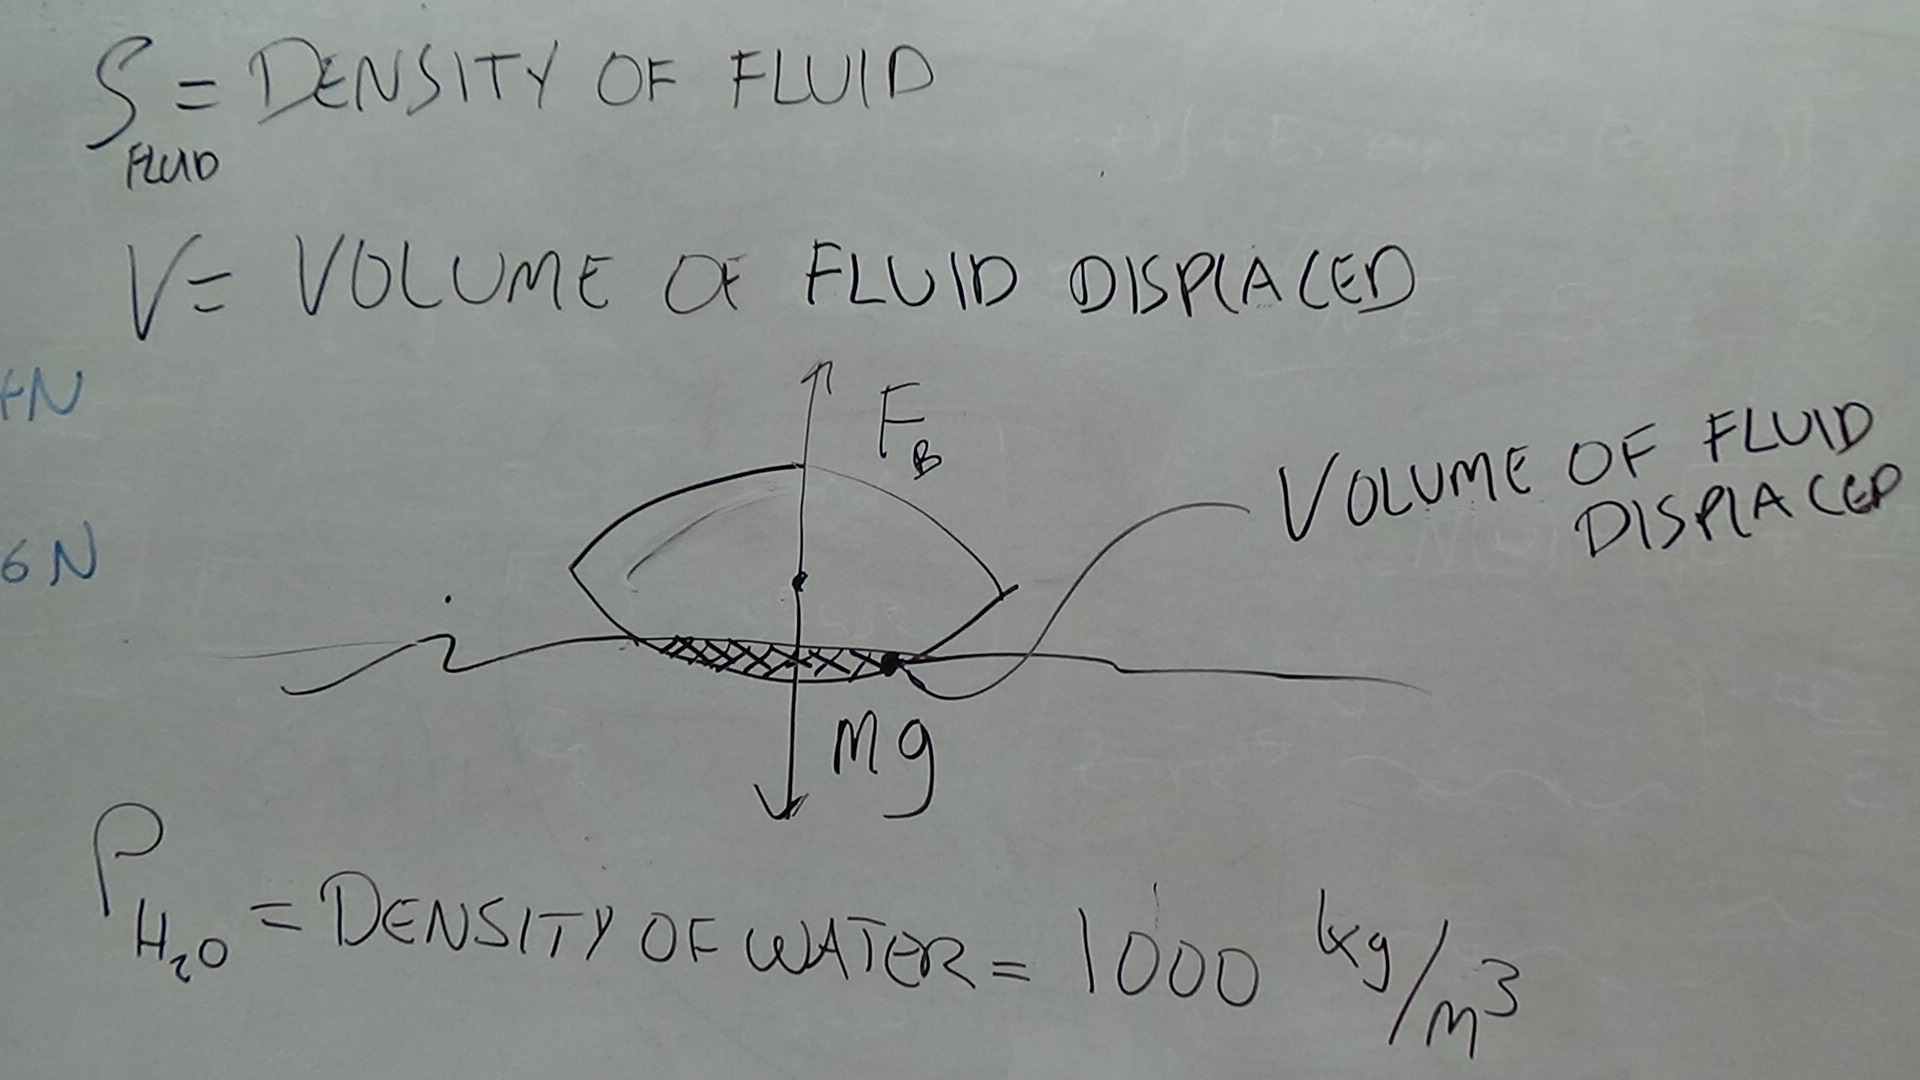 ρ = DENSITY OF FLUID
FLUID
V = VOLUME OF FLUID DISPLACED
N
F_B
VOLUME OF FLUID
DISPLACED
6N
mg
ρ_H₂O = DENSITY OF WATER = 1000 kg/m³